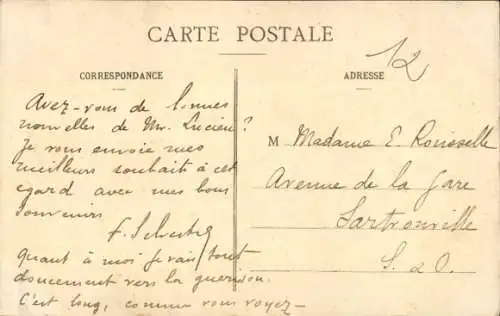 CARTE POSTALE
12
CORRESPONDANCE
ADRESSE
Avez-vous de bonnes
nouvelles de Mr. Lucien ?
Je vous envoie mes
meilleurs souhaits à cet
egard avec mes bons
souvenirs
F. Silvestre
Quant à moi je vais tout
doucement vers la guerison.
C'est long, comme vous voyez-
M Madame E. Rousselle
Avenue de la Gare
Sartrouville
S. & O.